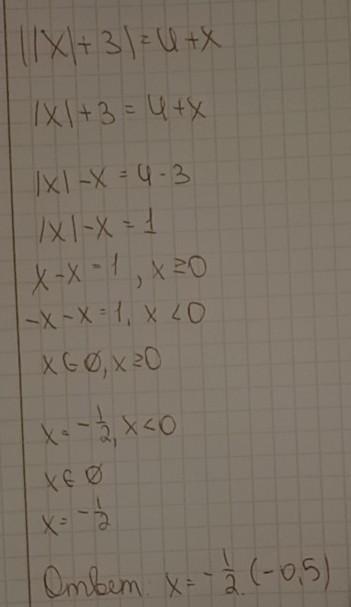 ||x|+3|=4+x
|x|+3=4+x
|x|-x=4-3
|x|-x=1
x-x=1, x≥0
-x-x=1, x<0
x∈∅, x≥0
x=-1/2, x<0
x∈∅
x=-1/2
Ответ: x=-1/2 (-0,5)